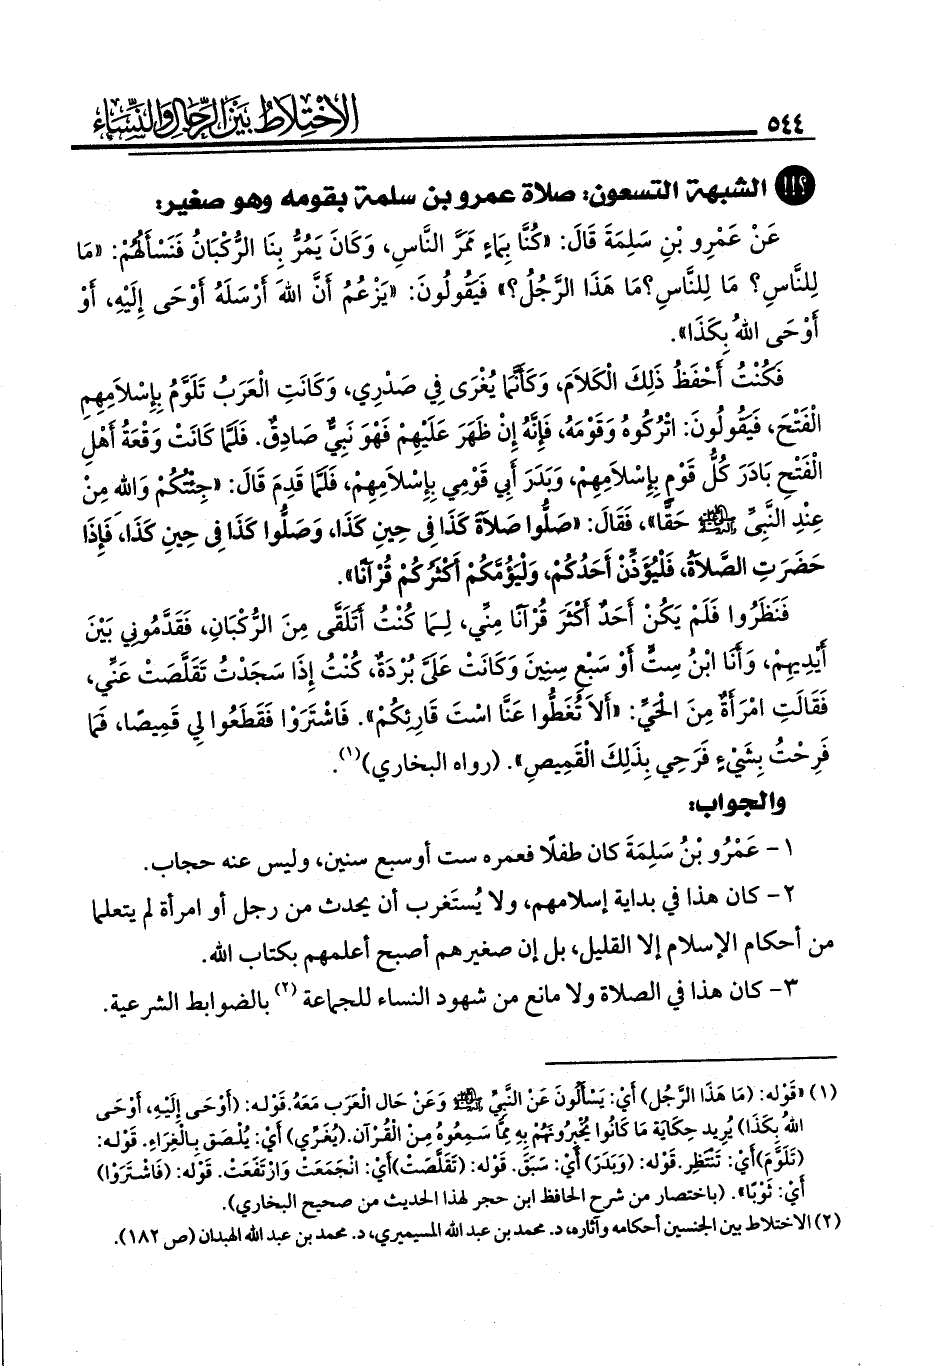 ٥٤٤ الاِخْتِلاَطُ بَيْنَ الرِّجَالِ وَالنِّسَاءِ
؟!! الشبهة التسعون: صلاة عمرو بن سلمة بقومه وهو صغير:
عَنْ عَمْرِو بْنِ سَلِمَةَ قَالَ: «كُنَّا بِمَاءٍ مَمَرَّ النَّاسِ، وَكَانَ يَمُرُّ بِنَا الرُّكْبَانُ فَنَسْأَلُهُمْ: «مَا
لِلنَّاسِ؟ مَا لِلنَّاسِ؟مَا هَذَا الرَّجُلُ؟» فَيَقُولُونَ: «يَزْعُمُ أَنَّ اللهَ أَرْسَلَهُ أَوْحَى إِلَيْهِ، أَوْ
أَوْحَى اللهُ بِكَذَا».
فَكُنْتُ أَحْفَظُ ذَلِكَ الْكَلَامَ، وَكَأَنَّمَا يُغْرَى فِي صَدْرِي، وَكَانَتِ الْعَرَبُ تَلَوَّمُ بِإِسْلَامِهِمِ
الْفَتْحَ، فَيَقُولُونَ: اتْرُكُوهُ وَقَوْمَهُ، فَإِنَّهُ إِنْ ظَهَرَ عَلَيْهِمْ فَهْوَ نَبِيٌّ صَادِقٌ. فَلَمَّا كَانَتْ وَقْعَةُ أَهْلِ
الْفَتْحِ بَادَرَ كُلُّ قَوْمٍ بِإِسْلَامِهِمْ، وَبَدَرَ أَبِي قَوْمِي بِإِسْلَامِهِمْ، فَلَمَّا قَدِمَ قَالَ: «جِئْتُكُمْ وَالله مِنْ
عِنْدِ النَّبِيِّ ﷺ حَقًّا»، فَقَالَ: «صَلُّوا صَلَاَةَ كَذَا فِي حِينِ كَذَا، وَصَلُّوا كَذَا فِي حِينِ كَذَا، فَإِذَا
حَضَرَتِ الصَّلَاةُ، فَلْيُؤَذِّنْ أَحَدُكُمْ، وَلْيَؤُمَّكُمْ أَكْثَرُكُمْ قُرْآنًا».
فَنَظَرُوا فَلَمْ يَكُنْ أَحَدٌ أَكْثَرَ قُرْآنًا مِنِّي، لِـمَا كُنْتُ أَتَلَقَّى مِنَ الرُّكْبَانِ، فَقَدَّمُونِي بَيْنَ
أَيْدِيهِمْ، وَأَنَا ابْنُ سِتٍّ أَوْ سَبْعِ سِنِينَ وَكَانَتْ عَلَيَّ بُرْدَةٌ، كُنْتُ إِذَا سَجَدْتُ تَقَلَّصَتْ عَنِّي،
فَقَالَتِ امْرَأَةٌ مِنَ الْحَيِّ: «أَلَا تُغَطُّوا عَنَّا اسْتَ قَارِئِكُمْ». فَاشْتَرَوْا فَقَطَعُوا لِي قَمِيصًا، فَمَا
فَرِحْتُ بِشَيْءٍ فَرَحِي بِذَلِكَ الْقَمِيصِ». (رواه البخاري)(١).
والجواب:
١- عَمْرُو بْنُ سَلِمَةَ كان طفلًا فعمره ست أو سبع سنين، وليس عنه حجاب.
٢- كان هذا في بداية إسلامهم، ولا يُستَغرب أن يحدث من رجل أو امرأة لم يتعلما
من أحكام الإسلام إلا القليل، بل إن صغيرهم أصبح أعلمهم بكتاب الله.
٣- كان هذا في الصلاة ولا مانع من شهود النساء للجماعة (٢) بالضوابط الشرعية.
(١) «قَوْله: (مَا هَذَا الرَّجُل) أَيْ: يَسْأَلُونَ عَنْ النَّبِيّ ﷺ وَعَنْ حَال الْعَرَب مَعَهُ.قَوْلـه: (أَوْحَى إِلَيْهِ، أَوْحَى
اللهُ بِكَذَا) يُرِيد حِكَايَة مَا كَانُوا يُخْبِرُونَهُمْ بِهِ مِمَّا سَمِعُوهُ مِنْ الْقُرْآن.(يُغَرِّي) أَيْ: يُلْصَق بِالْغِرَاءِ. قَوْلـه:
(تَلَوَّم)أَيْ: تَنْتَظِر.قَوْله: (وَبَدَرَ) أَيْ: سَبَقَ. قَوْله: (تَقَلَّصَتْ)أَيْ: انْجَمَعَتْ وَارْتَفَعَتْ. قَوْله: (فَاشْتَرَوْا)
أَيْ: ثَوْبًا». (باختصار من شرح الحافظ ابن حجر لهذا الحديث من صحيح البخاري).
(٢) الاختلاط بين الجنسين أحكامه وآثاره، د. محمد بن عبد الله المسيميري، د. محمد بن عبد الله الهبدان (ص ١٨٢).